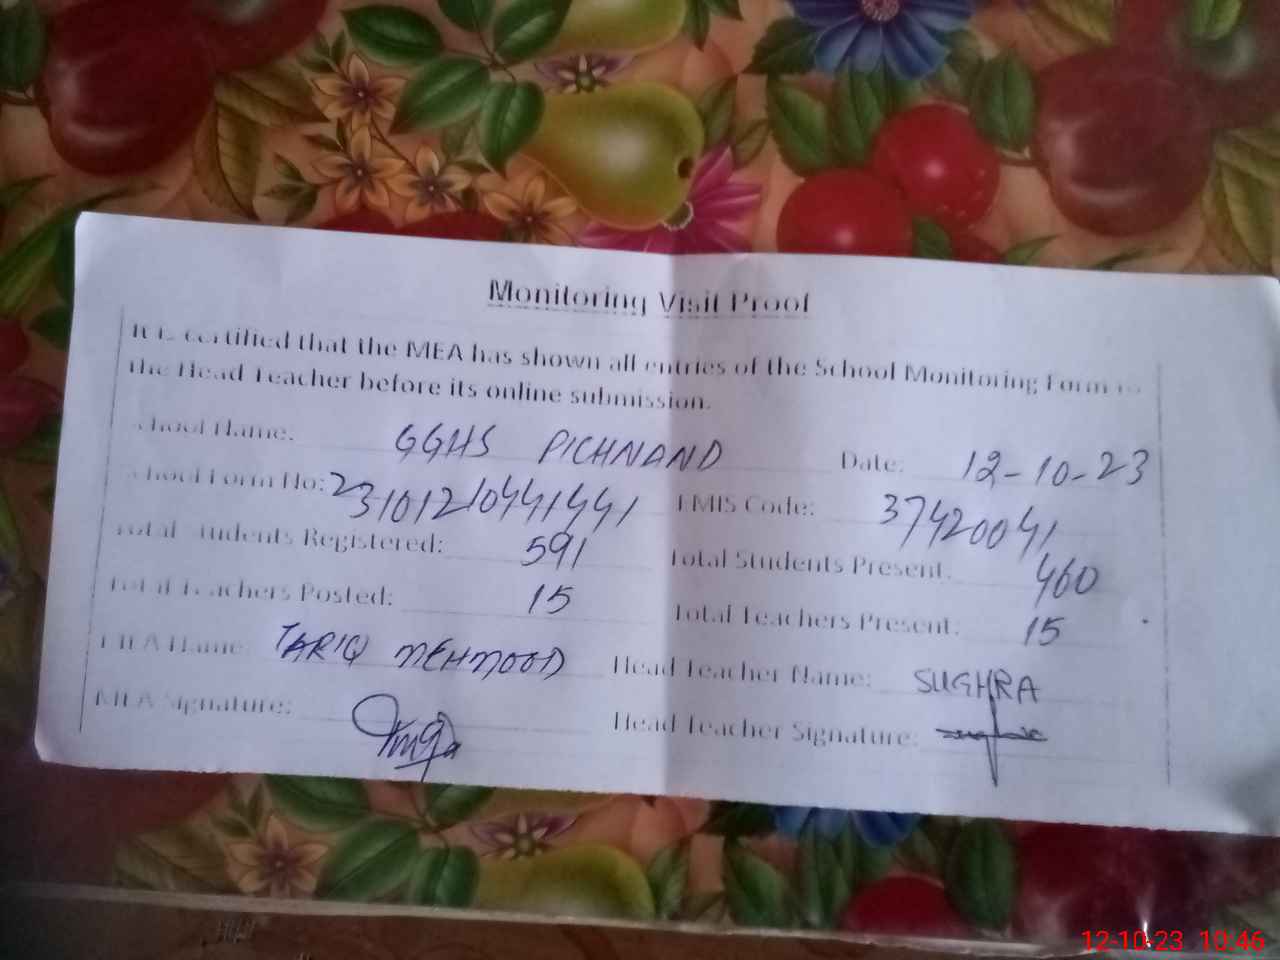 Monitoring Visit Proof
It is certified that the MEA has shown all entries of the School Monitoring Form to
the Head Teacher before its online submission.
School Name: GGHS PICHNAND Date: 12-10-23
School Form No: 23101210441441 EMIS Code: 37420041
Total Students Registered: 591 Total Students Present: 460
Total Teachers Posted: 15 Total Teachers Present: 15
MEA Name: TARIQ MEHMOOD Head Teacher Name: SUGHRA
MEA Signature: Head Teacher Signature:
12-10-23 10:46